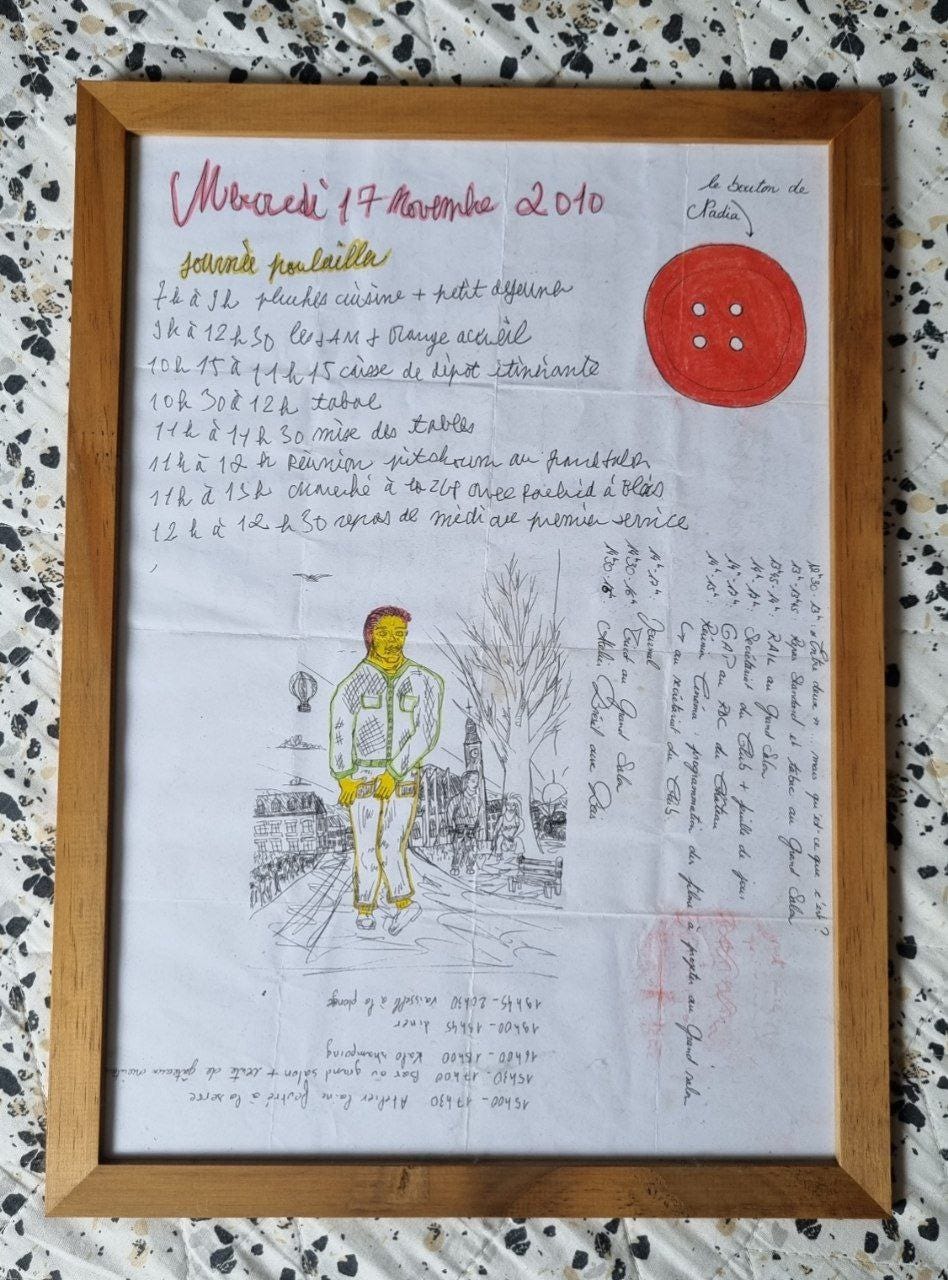 Mercredi 17 Novembre 2010
le bouton de
Nadia
Journée poulailler
7h à 9h pluches cuisine + petit dejeuner
9h à 12h30 les + orange accueil
10h 15 à 11h15 caisse de dépot itinérante
10h 30 à 12h tabac
11h à 11h 30 mise des tables
11h à 12h Réunion pitchoum au grand salon
11h à 13h marché à la avec Rachid à Blois
12h à 12h30 repas de midi au premier service
12h30-13h Entre deux n... mais qu'est-ce que c'est ?
13h-13h45: Repas Standard et tabac au Grand Salon
13h45-14h RAIL au Grand Salon
14h-17h: Secrétariat du Club + feuille de jour
14h-17h: GAP au RDC du Château
14h-15h: Réunion Cinéma: programmation des films à projeter au Grand Salon
↳ au secrétariat du Club
14h-17h. Journal
14h30-16h Tricot au Grand Salon
14h30-16h Atelier Brésil aux Bois
15h00-17h30 Atelier laine feutrée à la serre
15h30-17h00 Bar au grand salon + vente de gâteaux
16h00-18h00 Kafo shampoing
19h00-19h45 diner
19h45-20h30 vaisselle à la plonge